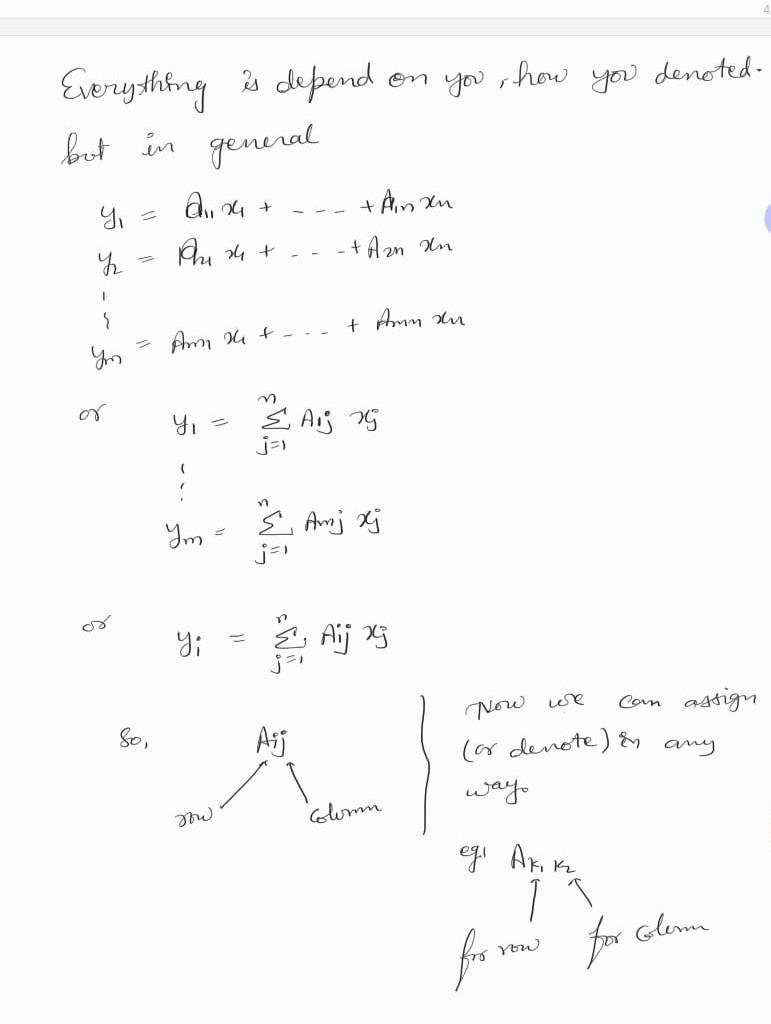 4
Everything is depend on you, how you denoted.
but in general
y₁ = a₁₁ x₁ + - - - + A₁n xn
y₂ = A₂₁ x₁ + - - - + A₂n xn
ym = Am₁ x₁ + - - - + Amn xn
or y₁ = n Σ j=1 A₁j xj
ym = n Σ j=1 Amj xj
or yi = n Σ j=1 Aij xj
So, Aij
row column
Now we can assign
(or denote) in any
way.
eg, Ak₁ k₂
for row for column